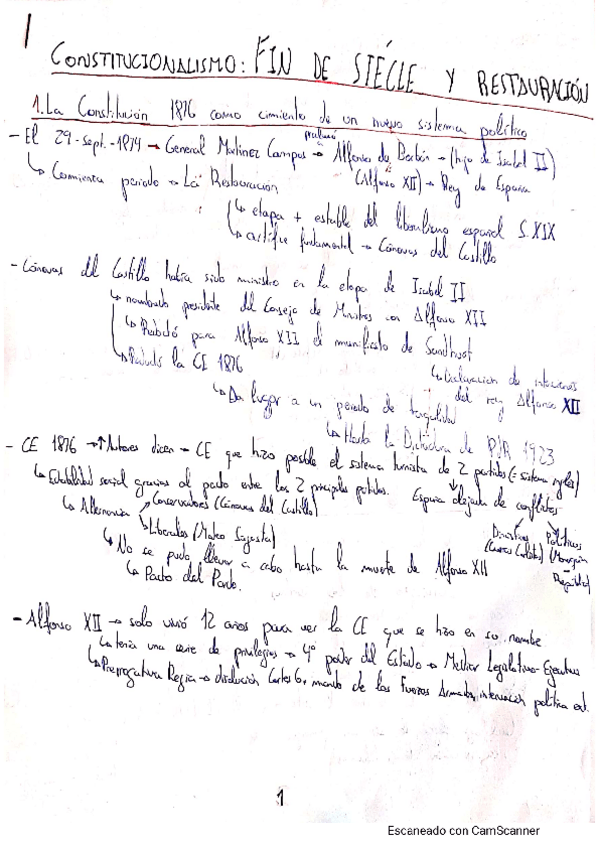 1
CONSTITUCIONALISMO: FIN DE SIÉCLE Y RESTAURACIÓN
1. La Constitución 1876 como cimiento de un nuevo sistema político
- El 29-Sept.-1874 → General Martinez Campos → proclamó a Alfonso de Borbón → (hijo de Isabel II)
(Alfonso XII) → Rey de España
↳ Comienza periodo → La Restauración
↳ etapa + estable del liberalismo español S.XIX
↳ artífice fundamental → Cánovas del Castillo
- Cánovas del Castillo había sido ministro en la etapa de Isabel II
↳ nombrado presidente del Consejo de Ministros con Alfonso XII
↳ Redactó para Alfonso XII el manifiesto de Sandhust
↳ Declaración de intenciones
del rey Alfonso XII
↳ Redactó la CE 1876
↳ Da lugar a un periodo de tranquilidad
↳ Hasta la Dictadura de PDR 1923
- CE 1876 → ↑ Autores dicen → CE que hizo posible el sistema turnista de 2 partidos (= sistema inglés)
↳ Estabilidad social gracias al pacto entre los 2 principales partidos.
España alejada de conflictos
↳ Alternancia
Conservadores (Cánovas del Castillo)
Liberales (Mateo Sagasta)
Dinásticos
(Guerras Carlistas)
Políticos
(Monarquía
República)
↳ No se pudo llevar a cabo hasta la muerte de Alfonso XII
↳ Pacto del Pardo.
- Alfonso XII → solo vivió 12 años para ver la CE que se hizo en su nombre
↳ tenía una serie de privilegios → 4º poder del Estado → Mediar Legislativo-Ejecutivo
↳ Prerrogativa Regia → disolución Cortes G, mando de las Fuerzas Armadas, intervención política ext.
1
Escaneado con CamScanner